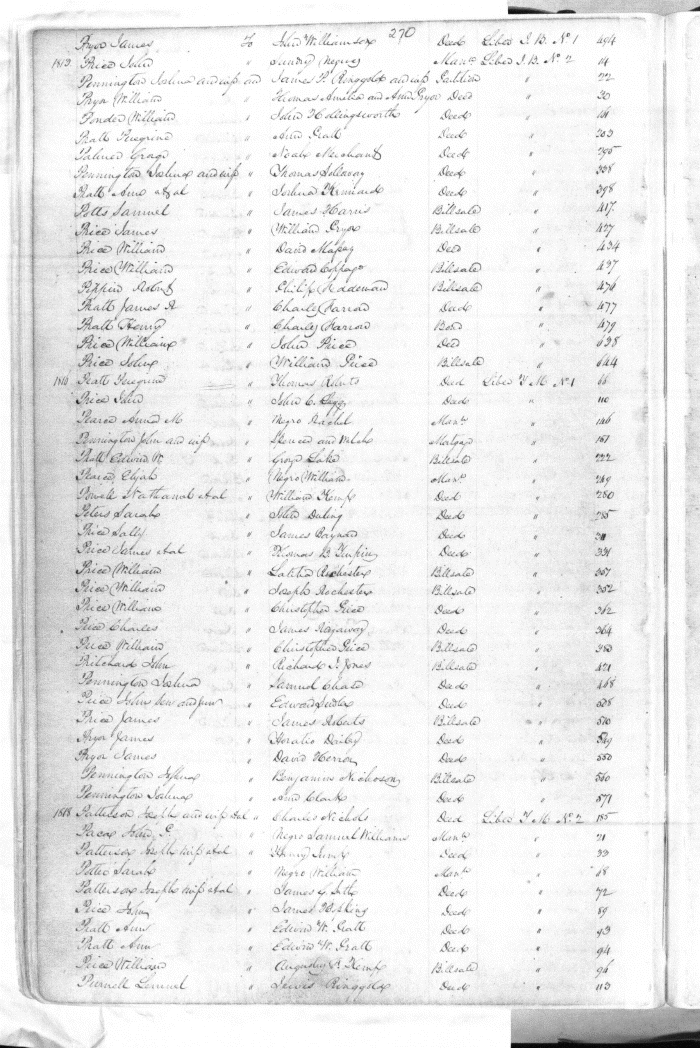 270
Pryor James To John Williamson Deed Liber J. B. No 1 494
Price John " Sundry Negroes Mann Liber J. B. No 2 14
Pennington Joshua and wife and James P. Ringgold and wife Partition " 22
Pryor William " Thomas Amelia and Ann Pryor Deed " 30
Ponder William " John Hollingsworth Deed "
Pratt Peregrine " Ann Pratt Deed " 203
Palmer George " Noah Merchant Deed " 295
Pennington Joshua and wife " Thomas Deed " 338
Pratt Ann et al " Joshua Kennard Deed " 398
Potts Samuel " James Harris Billsale " 417
Price James " William Billsale " 427
Price William " David Deed " 434
Price William " Edward Coppage Billsale " 437
Pippin Robert " Philip Billsale " 476
Pratt James " Charles Farrow Deed " 477
Pratt Henry " Charles Farrow Bond " 479
Price William " John Price Deed " 638
Price John " William Price Billsale " 644
Pratt Peregrine " Thomas Roberts Deed Liber T M No 1 66
Price John " John C. Deed " 110
Pearce Anna M " Negro Rachel Mann " 146
Pennington John and wife " Spencer and Welch Mortgage " 161
Pratt Edward W. " George Lake Billsale " 222
Pearce Elijah " Negro William Mann " 249
Powell Nathaniel et al " William Kemp Deed " 280
Peters Sarah " John Duling Deed " 285
Price Sally " James Baynard Deed " 311
Price James et al " Thomas B. Deed " 331
Price William " Letitia Rochester Billsale " 351
Price William " Joseph Rochester Billsale " 352
Price William " Christopher Price Deed " 362
Price Charles " James Deed " 364
Price William " Christopher Price Billsale " 380
Pritchard John " Richard I. Jones Billsale " 421
Pennington Joshua " Samuel Chase Deed " 468
Price John Sen and Jun " Edward Deed " 528
Price James " James Roberts Billsale " 540
Pryor James " Horatio Deed " 549
Pryor James " David Herron Deed " 550
Pennington Joshua " Benjamin Nicholson Billsale " 560
Pennington Joshua " Ann Clark Deed " 571
1818 Patterson Joseph and wife et al " Charles Nichols Deed Liber T M. No 2 185
Pacax John P. " Negro Samuel Williams Mann " 21
Patterson Joseph wife et al " Henry Deed " 33
Potter Sarah " Negro William Mann " 68
Patterson Joseph wife et al " James G. Seth Deed " 72
Price John " James Hopkins Deed " 89
Pratt Ann " Edward W. Pratt Deed " 93
Pratt Ann " Edward W. Pratt Deed " 94
Price William " Augustus R Kemp Billsale " 96
Purnell Lemuel " Lewis Ringgold Deed " 113